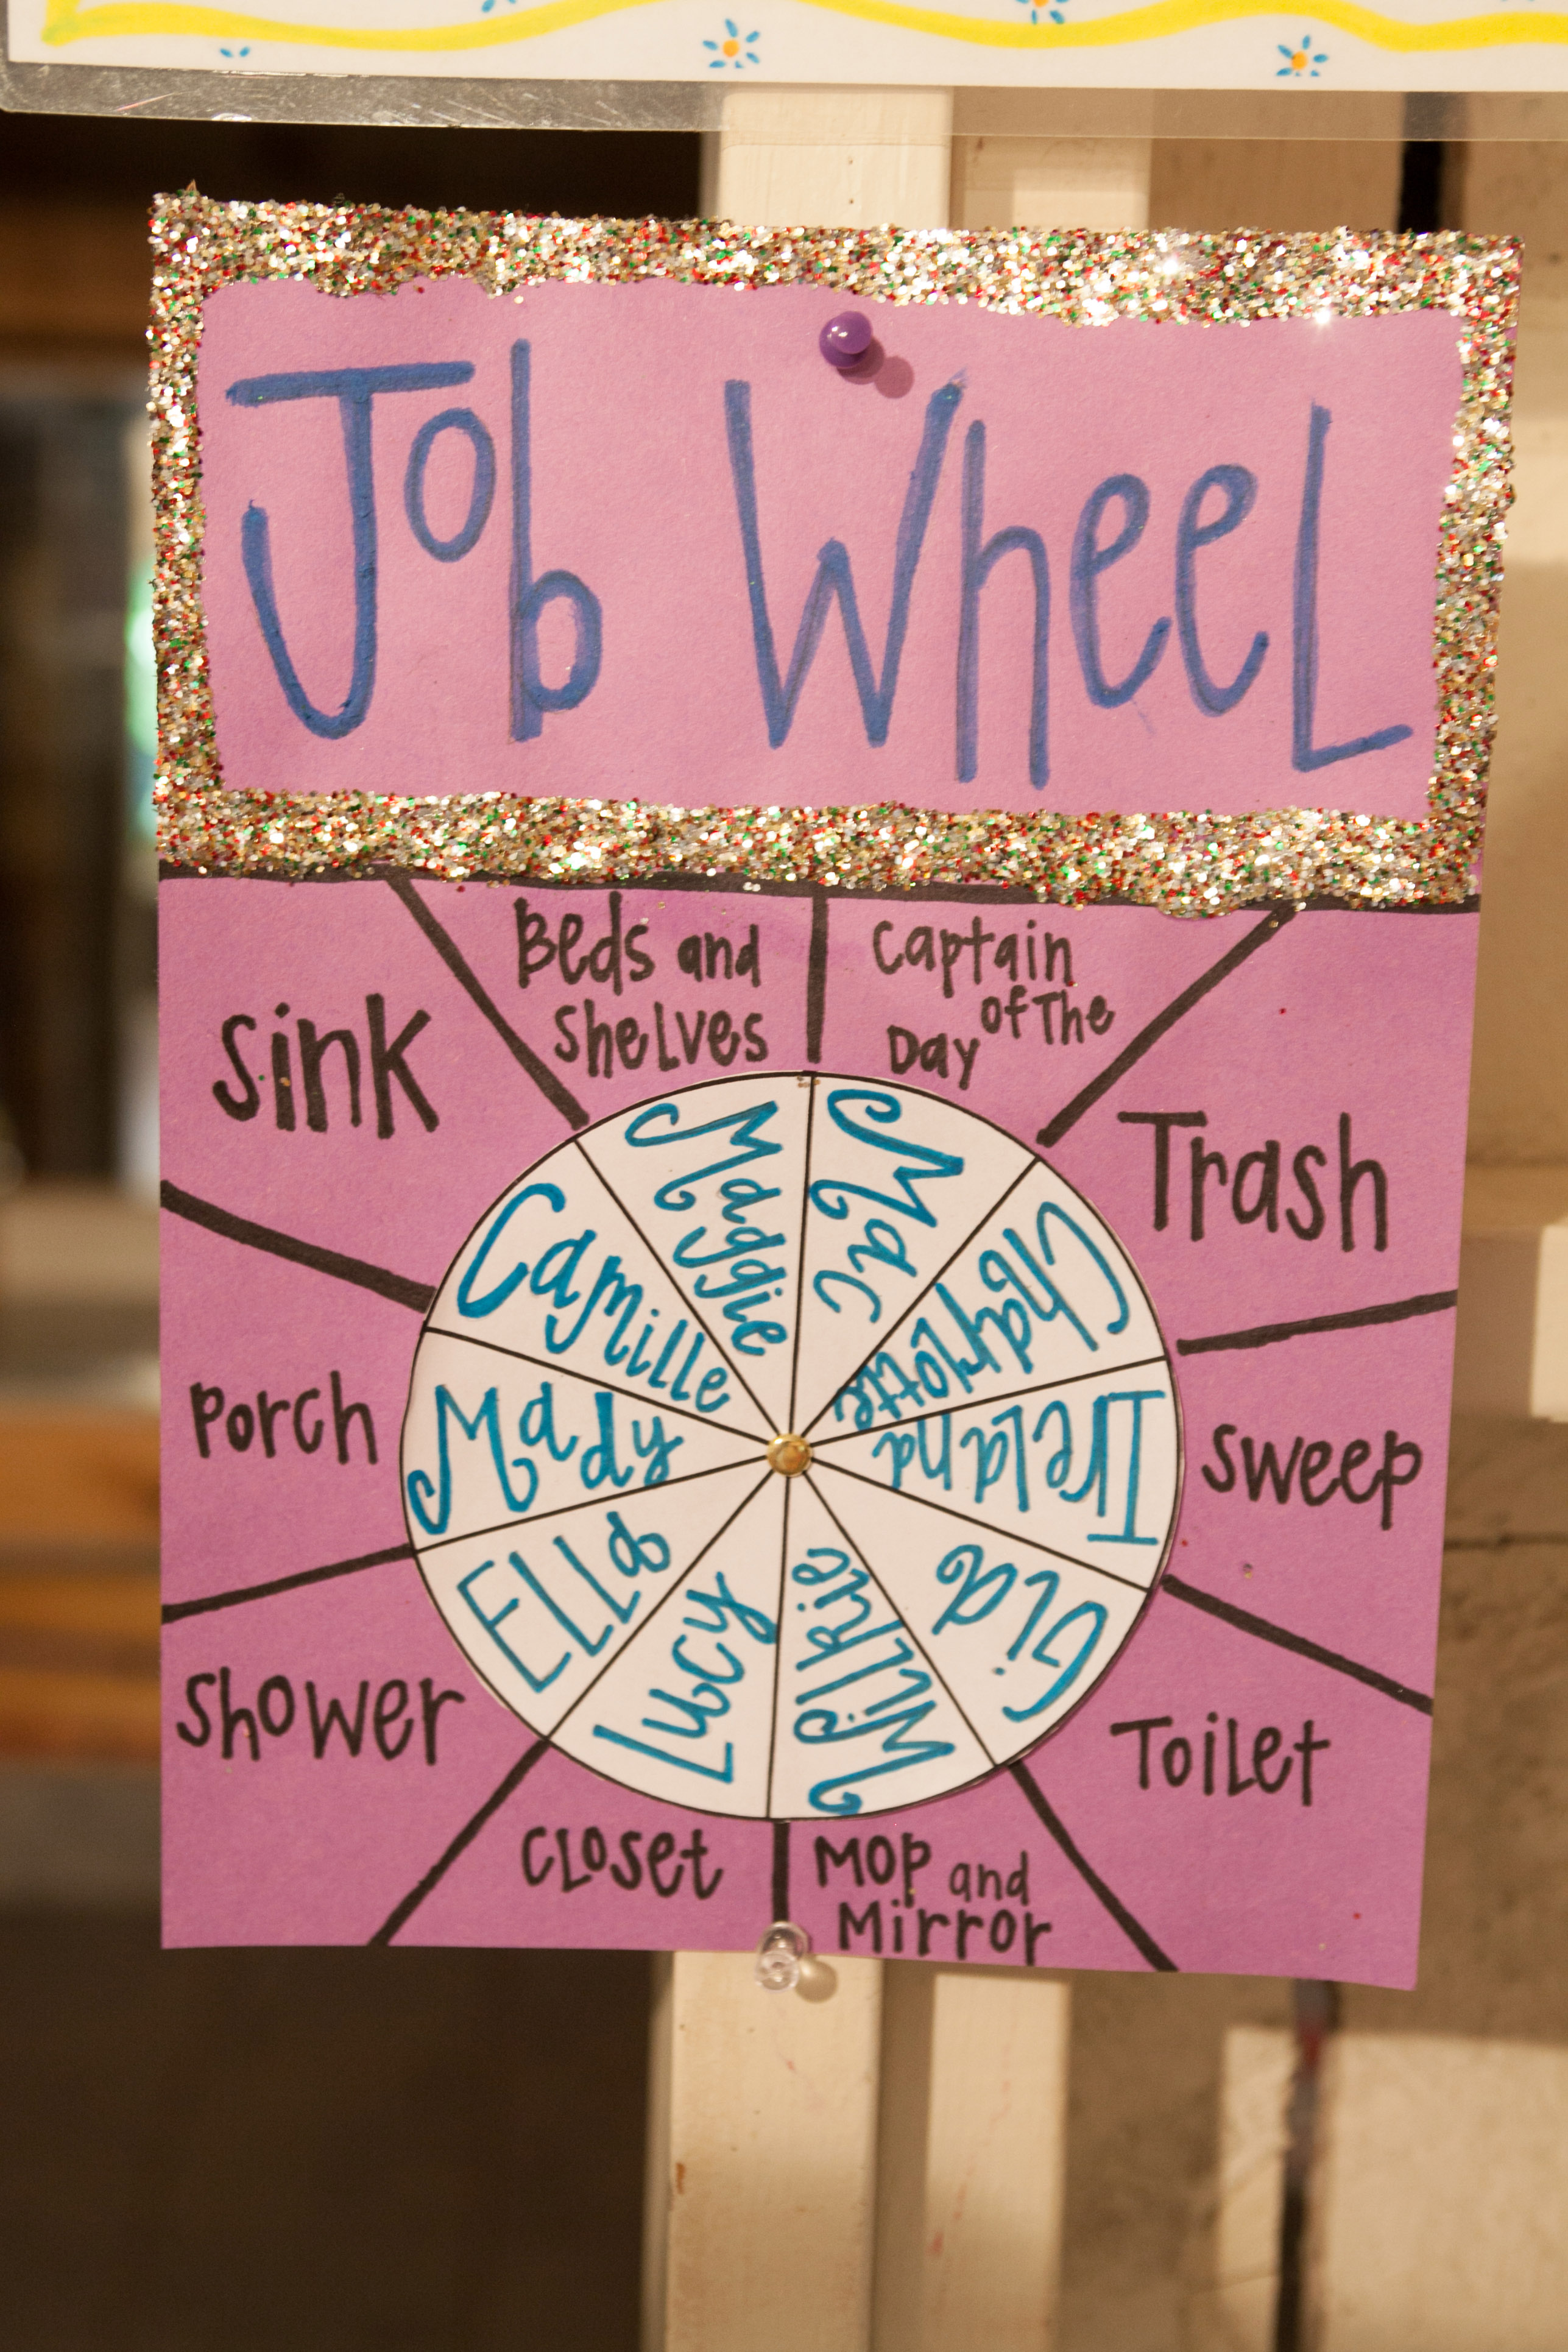 Job Wheel
Beds and
Shelves
Captain
of The
Day
Sink
Trash
Porch
Sweep
Shower
Toilet
Closet
Mop and
Mirror
Maggie
Mac
Charlotte
Ireland
Gia
Wilkie
Lucy
Ella
Mady
Camille